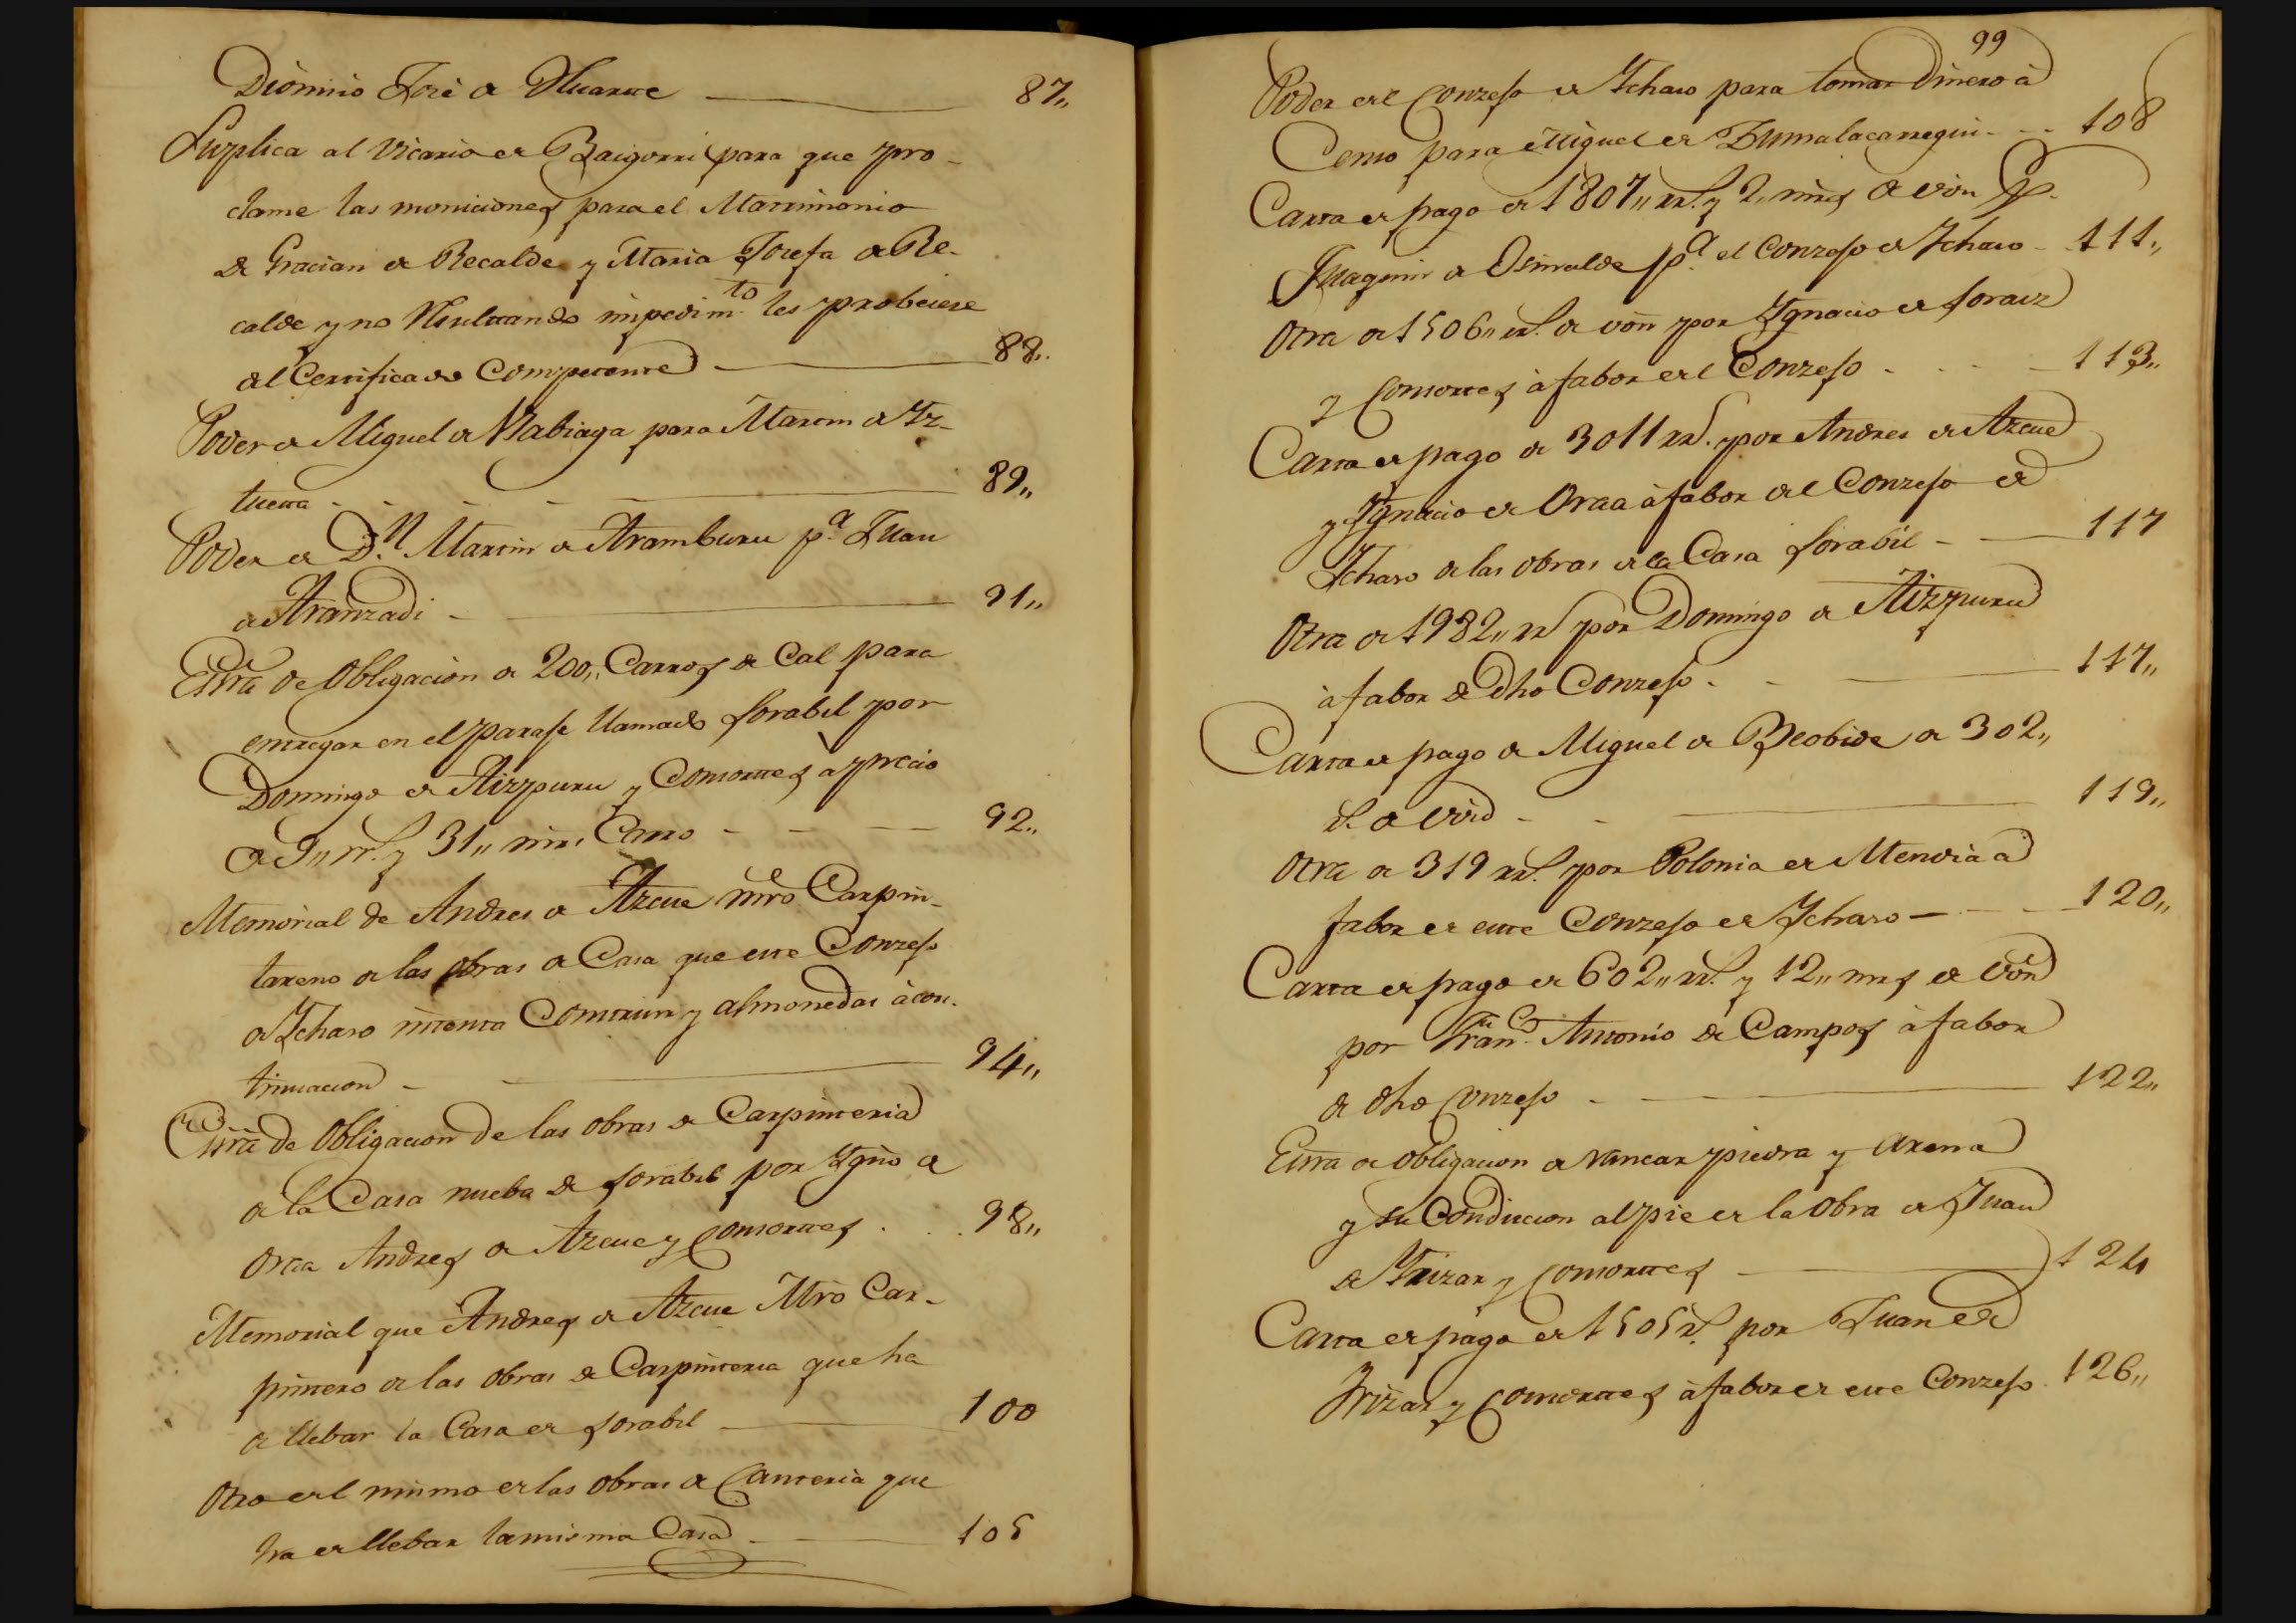 Dionisio José de Huarte 87,,
Suplica al Vicario de Baigorri para que pro-
clame las moniciones para el Matrimonio
de Gracian de Recalde y Maria Josefa de Re-
calde y no resultando impedim.to les probeiese
del Certificado Competente 88,,
Poder de Miguel de Nabiaga para Martin de Yz-
tueta 89,,
Poder de D.n Martin de Aramburu p.a Juan
de Aranzadi 91,,
Essra de Obligacion de 200,, Carros de Cal para
entregar en el paraje llamado Sorabil por
Domingo de Aizpuru y Consortes a precio
de 9,, rr.s y 31,, mrs Carro 92,,
Memorial de Andres de Azcue mro Carpin-
tereno de las obras de Casa que este Conzejo
de Ycharo intenta Construir y almonedas à con-
tinuacion 94,,
Essra de Obligacion de las obras de Carpinteria
de la Casa nueba de Sorabil por Ygno de
Oraa Andres de Azcue y Consortes 98,,
Memorial que Andres de Azcue Mro Car-
pintero de las obras de Carpinteria que ha
de llebar la Casa de Sorabil 100
Otro del mismo de las obras de Canteria que
ha de llebar la misma Casa 105
99
Poder del Conzejo de Ycharo para tomar dinero à
Censo para Miguel de Zumalacarregui 108
Carta de pago de 1807,, rr.s y 2,, mrs de von p.
Juaquin de Osinalde p.a el Conzejo de Ycharo 111,,
Otra de 1506,, rr.s de von por Ygnacio de Soraiz
y Consortes à fabor del Conzejo 113,,
Carta de pago de 3011 rr.s por Andres de Azcue
y Ygnacio de Oraa à fabor del Conzejo de
Ycharo de las obras de la Casa Sorabil 117
Otra de 1982,, rr.s por Domingo de Aizpuru
à fabor de dho Conzejo 117,,
Carta de pago de Miguel de Beobide de 302,,
r.s de von 119,,
Otra de 319 rr.s por Polonia de Mendia a
fabor de este Conzejo de Ycharo 120,,
Carta de pago de 602,, rr.s y 12,, mrs de von
por Fran.co Antonio de Campos à fabor
de dho Conzejo 122,,
Essra de obligacion de rancar piedra y arena
y su Conduccion al pie de la Obra de Juan
de Yrizar y Consortes 124
Carta de pago de 1505 r.s por Juan de
Yrizar y Consortes à fabor de este Conzejo 126,,